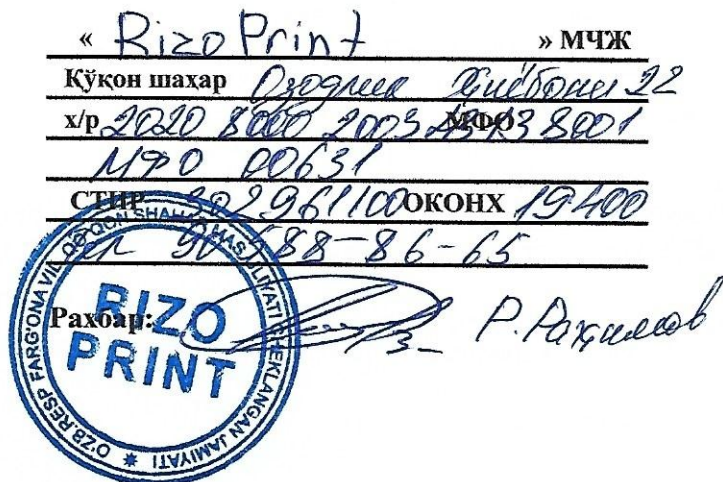 « Rizo Print » МЧЖ
Қўқон шаҳар Озодлик Хиёбони 22
х/р 2020 8000 2003 МФО 8001
МФО 00631
СТИР 302961100 ОКОНХ 19400
90 588-86-65
Рахбар: Р. Раҳимов
RIZO
PRINT
O'ZB.RESP FARG'ONA VIL. QO'QON SHAHAR MAS'ULIYATI CHEKLANGAN JAMIYATI